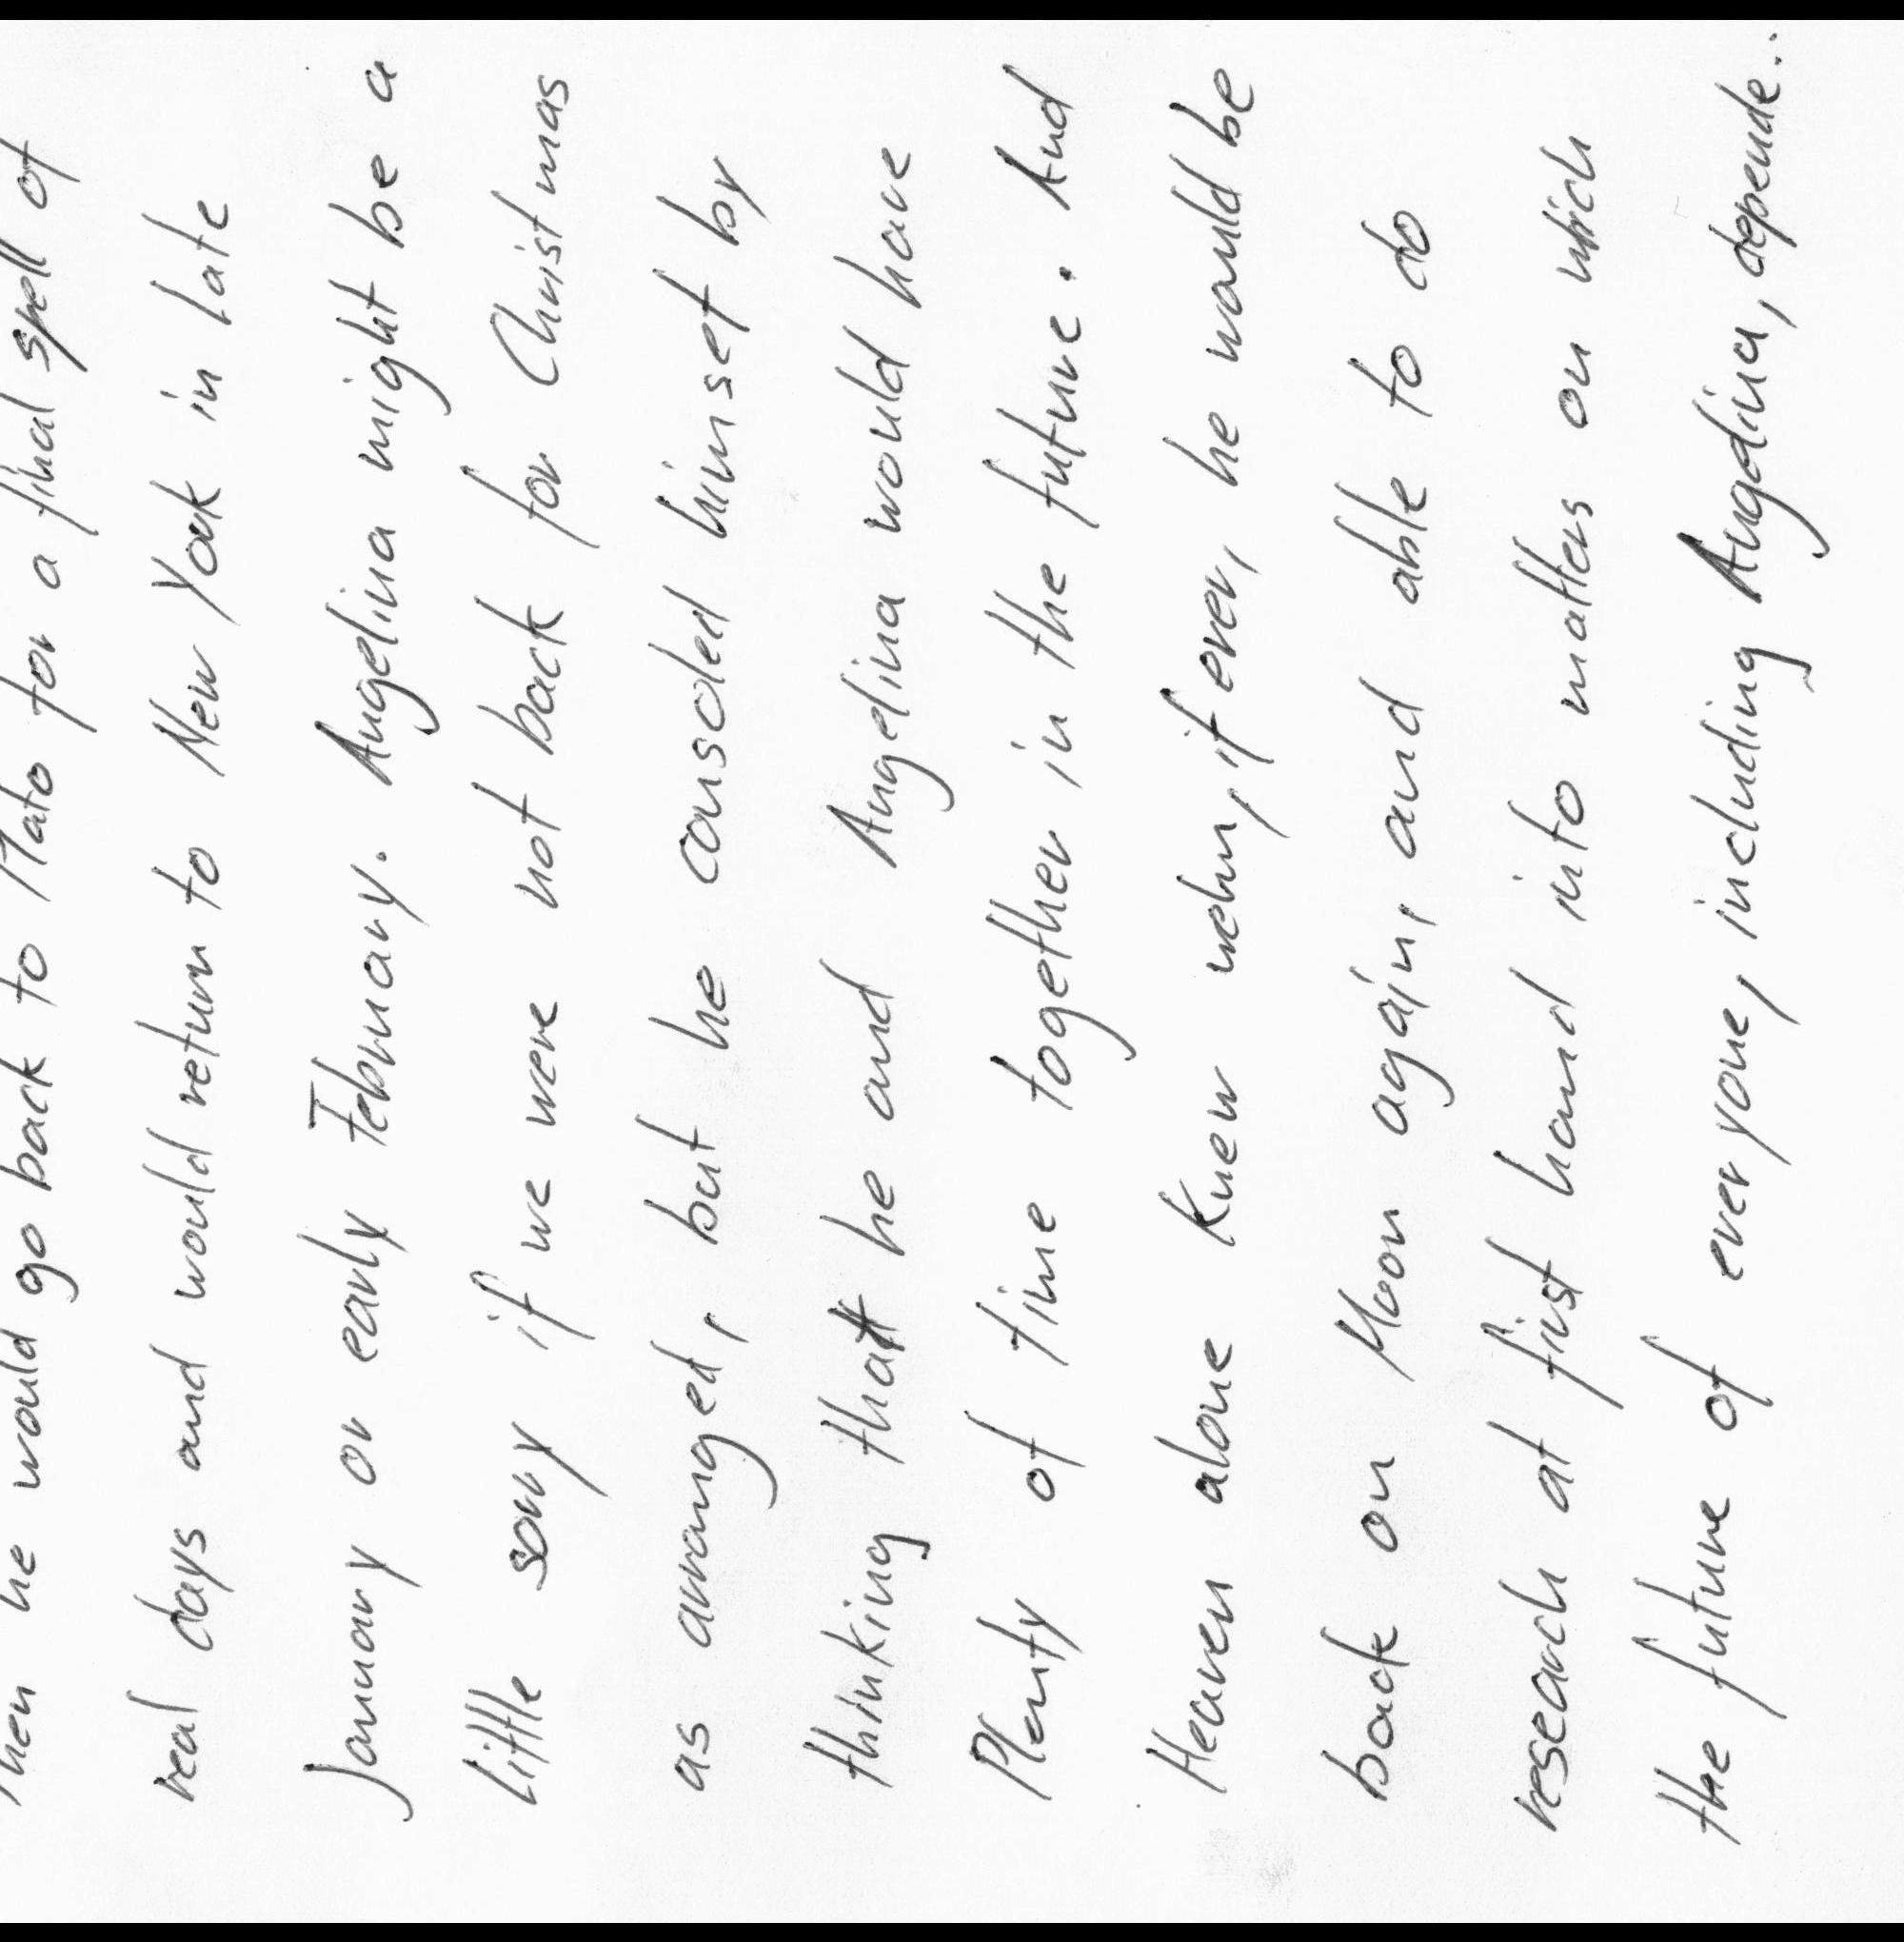 Then he would go back to Plato for a final spell of
real days and would return to New York in late
January or early February. Angelina might be a
little sorry if we were not back for Christmas
as arranged, but he consoled himset by
thinking that he and Angelina would have
Plenty of time together in the future. And
Heaven alone knew wehn, if ever, he would be
back on Moon again, and able to do
research at first hand into matters on which
the future of everyone, including Angelina, depende..